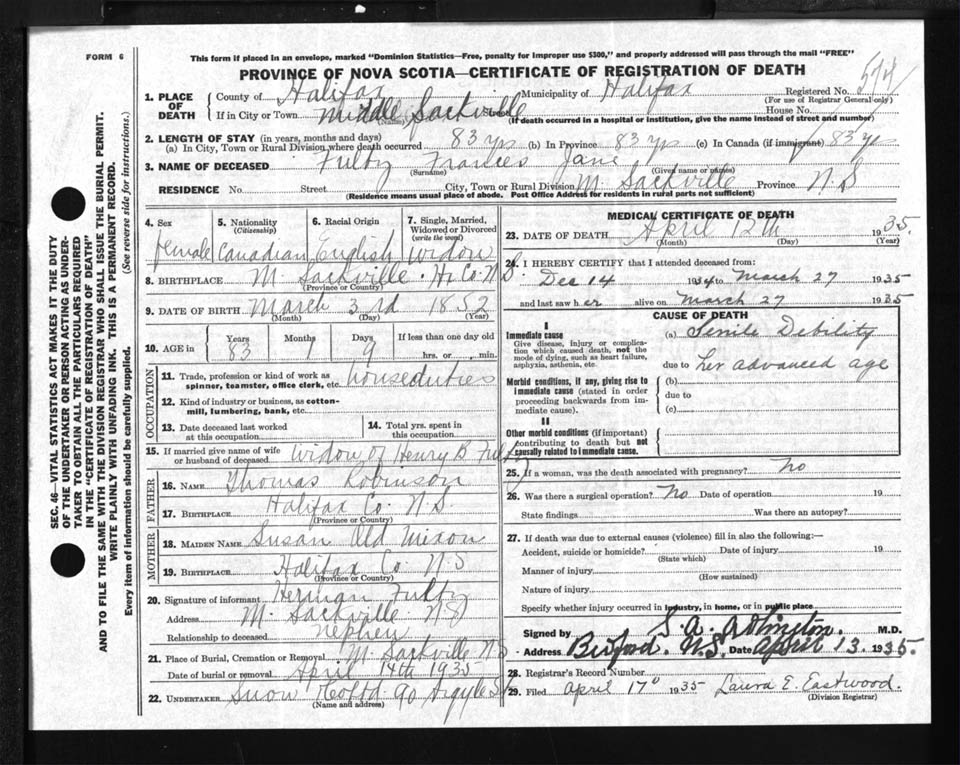 FORM 6
This form if placed in an envelope, marked "Dominion Statistics—Free, penalty for improper use $300," and properly addressed will pass through the mail "FREE"
PROVINCE OF NOVA SCOTIA—CERTIFICATE OF REGISTRATION OF DEATH
SEC. 46—VITAL STATISTICS ACT MAKES IT THE DUTY
OF THE UNDERTAKER OR PERSON ACTING AS UNDER-
TAKER TO OBTAIN ALL THE PARTICULARS REQUIRED
IN THE "CERTIFICATE OF REGISTRATION OF DEATH"
AND TO FILE THE SAME WITH THE DIVISION REGISTRAR WHO SHALL ISSUE THE BURIAL PERMIT.
WRITE PLAINLY WITH UNFADING INK. THIS IS A PERMANENT RECORD.
Every item of information should be carefully supplied. (See reverse side for instructions.)
1. PLACE OF DEATH County of Halifax Municipality of Halifax Registered No.
(For use of Registrar General only)
If in City or Town Middle Sackville Street House No.
(Name) (If death occurred in a hospital or institution, give the name instead of street and number)
2. LENGTH OF STAY (in years, months and days)
(a) In City, Town or Rural Division where death occurred 83 yrs (b) In Province 83 yrs (c) In Canada (if immigrant) 83 yrs
3. NAME OF DECEASED Fultz Frances Jane
(Surname) (Given name or names)
RESIDENCE No. Street City, Town or Rural Division M. Sackville Province N.S
(Residence means usual place of abode. Post Office Address for residents in rural parts not sufficient)
4. Sex female
5. Nationality (Citizenship) Canadian
6. Racial Origin English
7. Single, Married, Widowed or Divorced (write the word) Widow
8. BIRTHPLACE M. Sackville. Hx Co. N.S.
(Province or Country)
9. DATE OF BIRTH March 3rd 1852
(Month) (Day) (Year)
10. AGE in Years 83 Months 1 Days 9 If less than one day old hrs. or min.
OCCUPATION
11. Trade, profession or kind of work as spinner, teamster, office clerk, etc. houseduties
12. Kind of industry or business, as cotton-mill, lumbering, bank, etc.
13. Date deceased last worked at this occupation
14. Total yrs. spent in this occupation
15. If married give name of wife or husband of deceased widow of Henry B Fultz
FATHER
16. NAME Thomas Robinson
17. BIRTHPLACE Halifax Co. N.S.
(Province or Country)
MOTHER
18. MAIDEN NAME Susan Old Mixon
19. BIRTHPLACE Halifax Co. N.S
(Province or Country)
20. Signature of informant Herman Fultz
Address M. Sackville. N.S
Relationship to deceased nephew
21. Place of Burial, Cremation or Removal M. Sackville N.S
Date of burial or removal April 14th 1935
22. UNDERTAKER Snow & Co Ltd 90 Argyle St
(Name and address)
MEDICAL CERTIFICATE OF DEATH
23. DATE OF DEATH April 12th 1935.
(Month) (Day) (Year)
24. I HEREBY CERTIFY that I attended deceased from:
Dec 14 1934 to March 27 1935
and last saw her alive on March 27 1935
CAUSE OF DEATH
I
Immediate cause
Give disease, injury or complica-
tion which caused death, not the
mode of dying, such as heart failure,
asphyxia, asthenia, etc.
(a) Senile Debility
due to her advanced age
Morbid conditions, if any, giving rise to
immediate cause (stated in order
proceeding backwards from im-
mediate cause).
(b)
due to
(c)
II
Other morbid conditions (if important)
contributing to death but not
causally related to immediate cause.
25. If a woman, was the death associated with pregnancy? No
26. Was there a surgical operation? No Date of operation 19
State findings Was there an autopsy?
27. If death was due to external causes (violence) fill in also the following:—
Accident, suicide or homicide? Date of injury 19
(State which)
Manner of injury
(How sustained)
Nature of injury
Specify whether injury occurred in industry, in home, or in public place
Signed by M.D.
Address Bedford. N.S. Date April 13. 1935.
28. Registrar's Record Number
29. Filed April 17 1935 Laura E. Eastwood.
(Division Registrar)